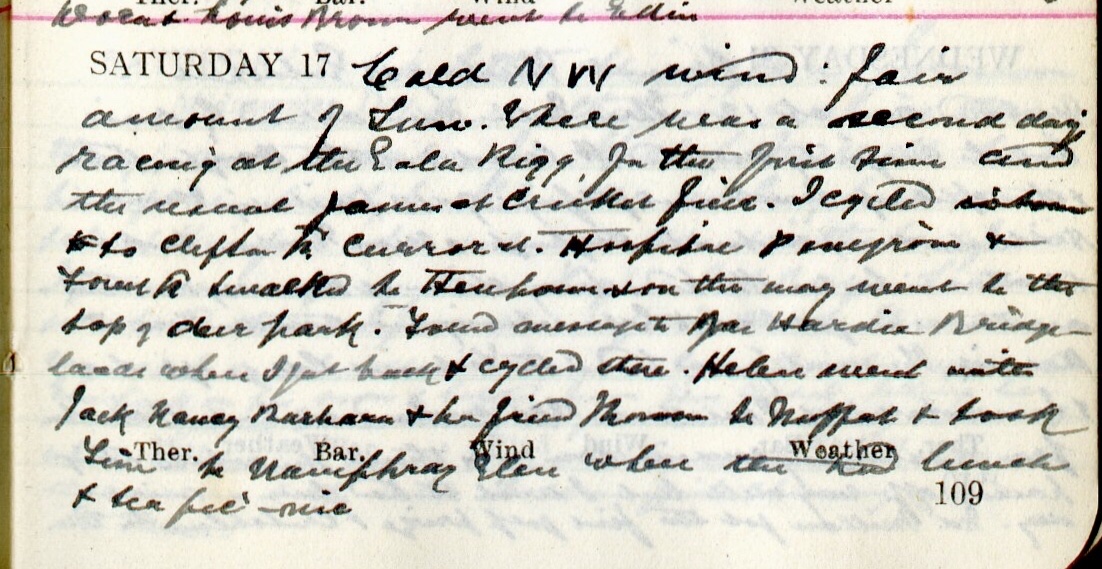 Ther. Bar. Wind Weather
Louis Brown went to Edin
SATURDAY 17 Cold N W wind. fair
amount of Sun. There was a second day's
racing at the Rigg for the first time and
the usual games at Cricket field. I cycled
to Clifton & Currar. Hospital &
Town & walked to & on the way went to the
top of deer park. Found message Hardie Bridge
lands when I got back & cycled there. Helen went with
Jack Nancy Barbara & her friend to Moffat & took
Ther. Bar. Wind Weather
to Wamphray Glen where they had lunch
& tea pic-nic
109